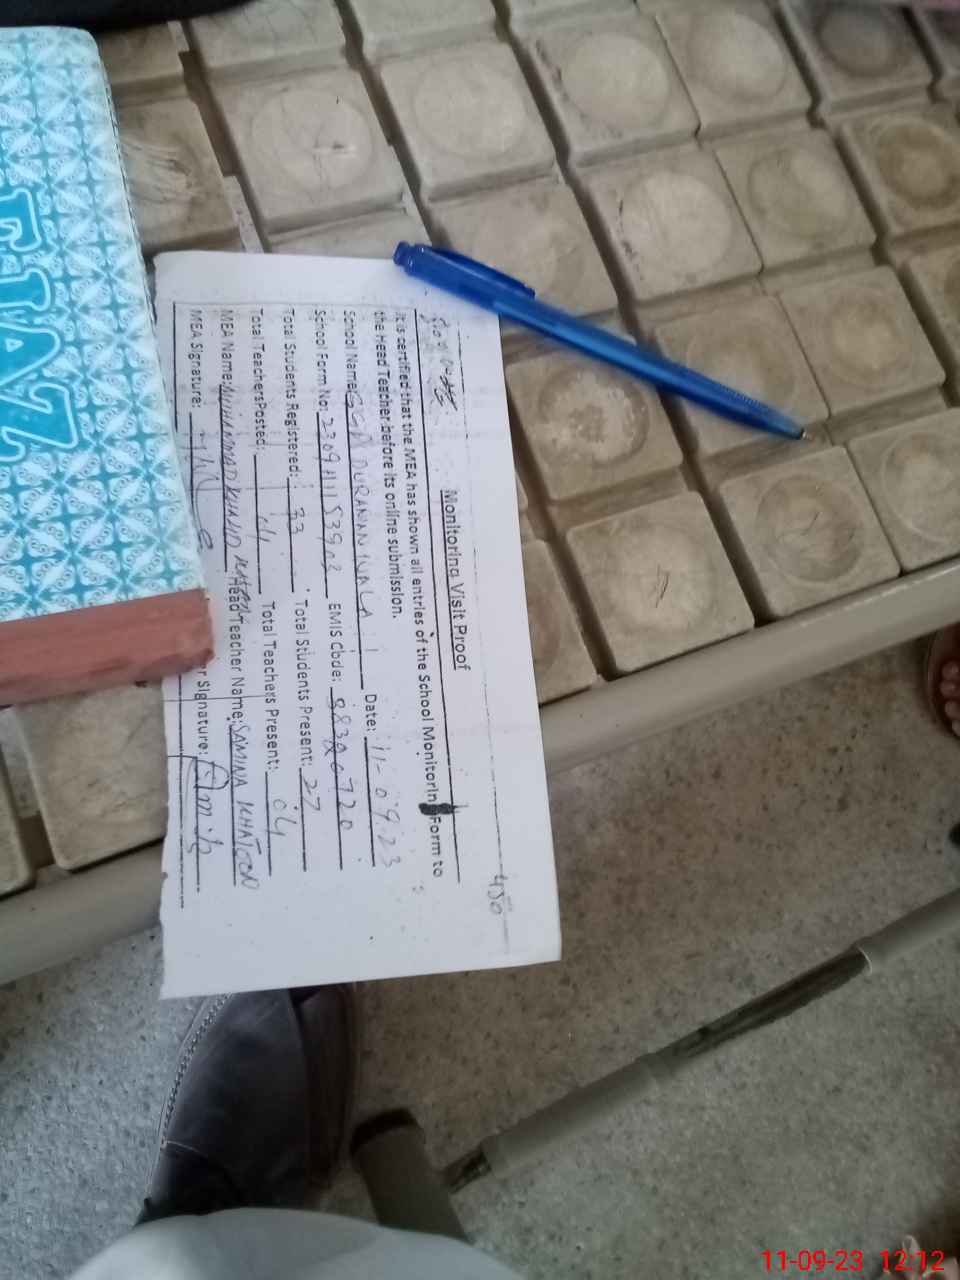 FIAZ
450
Monitoring Visit Proof
It is certified that the MEA has shown all entries of the School Monitorin Form to
the Head Teacher before its online submission.
School Name: Date: 11-09-23
School Form No: EMIS Code: 38320720
Total Students Registered: 33 Total Students Present: 27
Total TeachersPosted: 04 Total Teachers Present: 04
MEA Name: MUHAMMAD Head Teacher Name: SAMINA KHATOON
MEA Signature: r Signature:
11-09-23 12:12